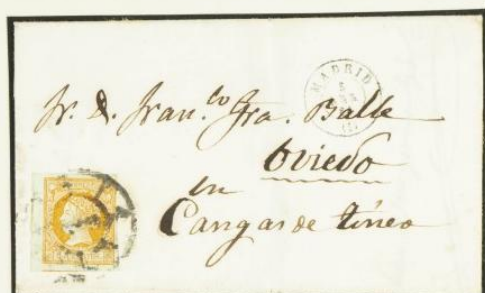 MADRID
Sr. D. Fran.co Gra. Balle
Oviedo
en
Cangas de Tineo